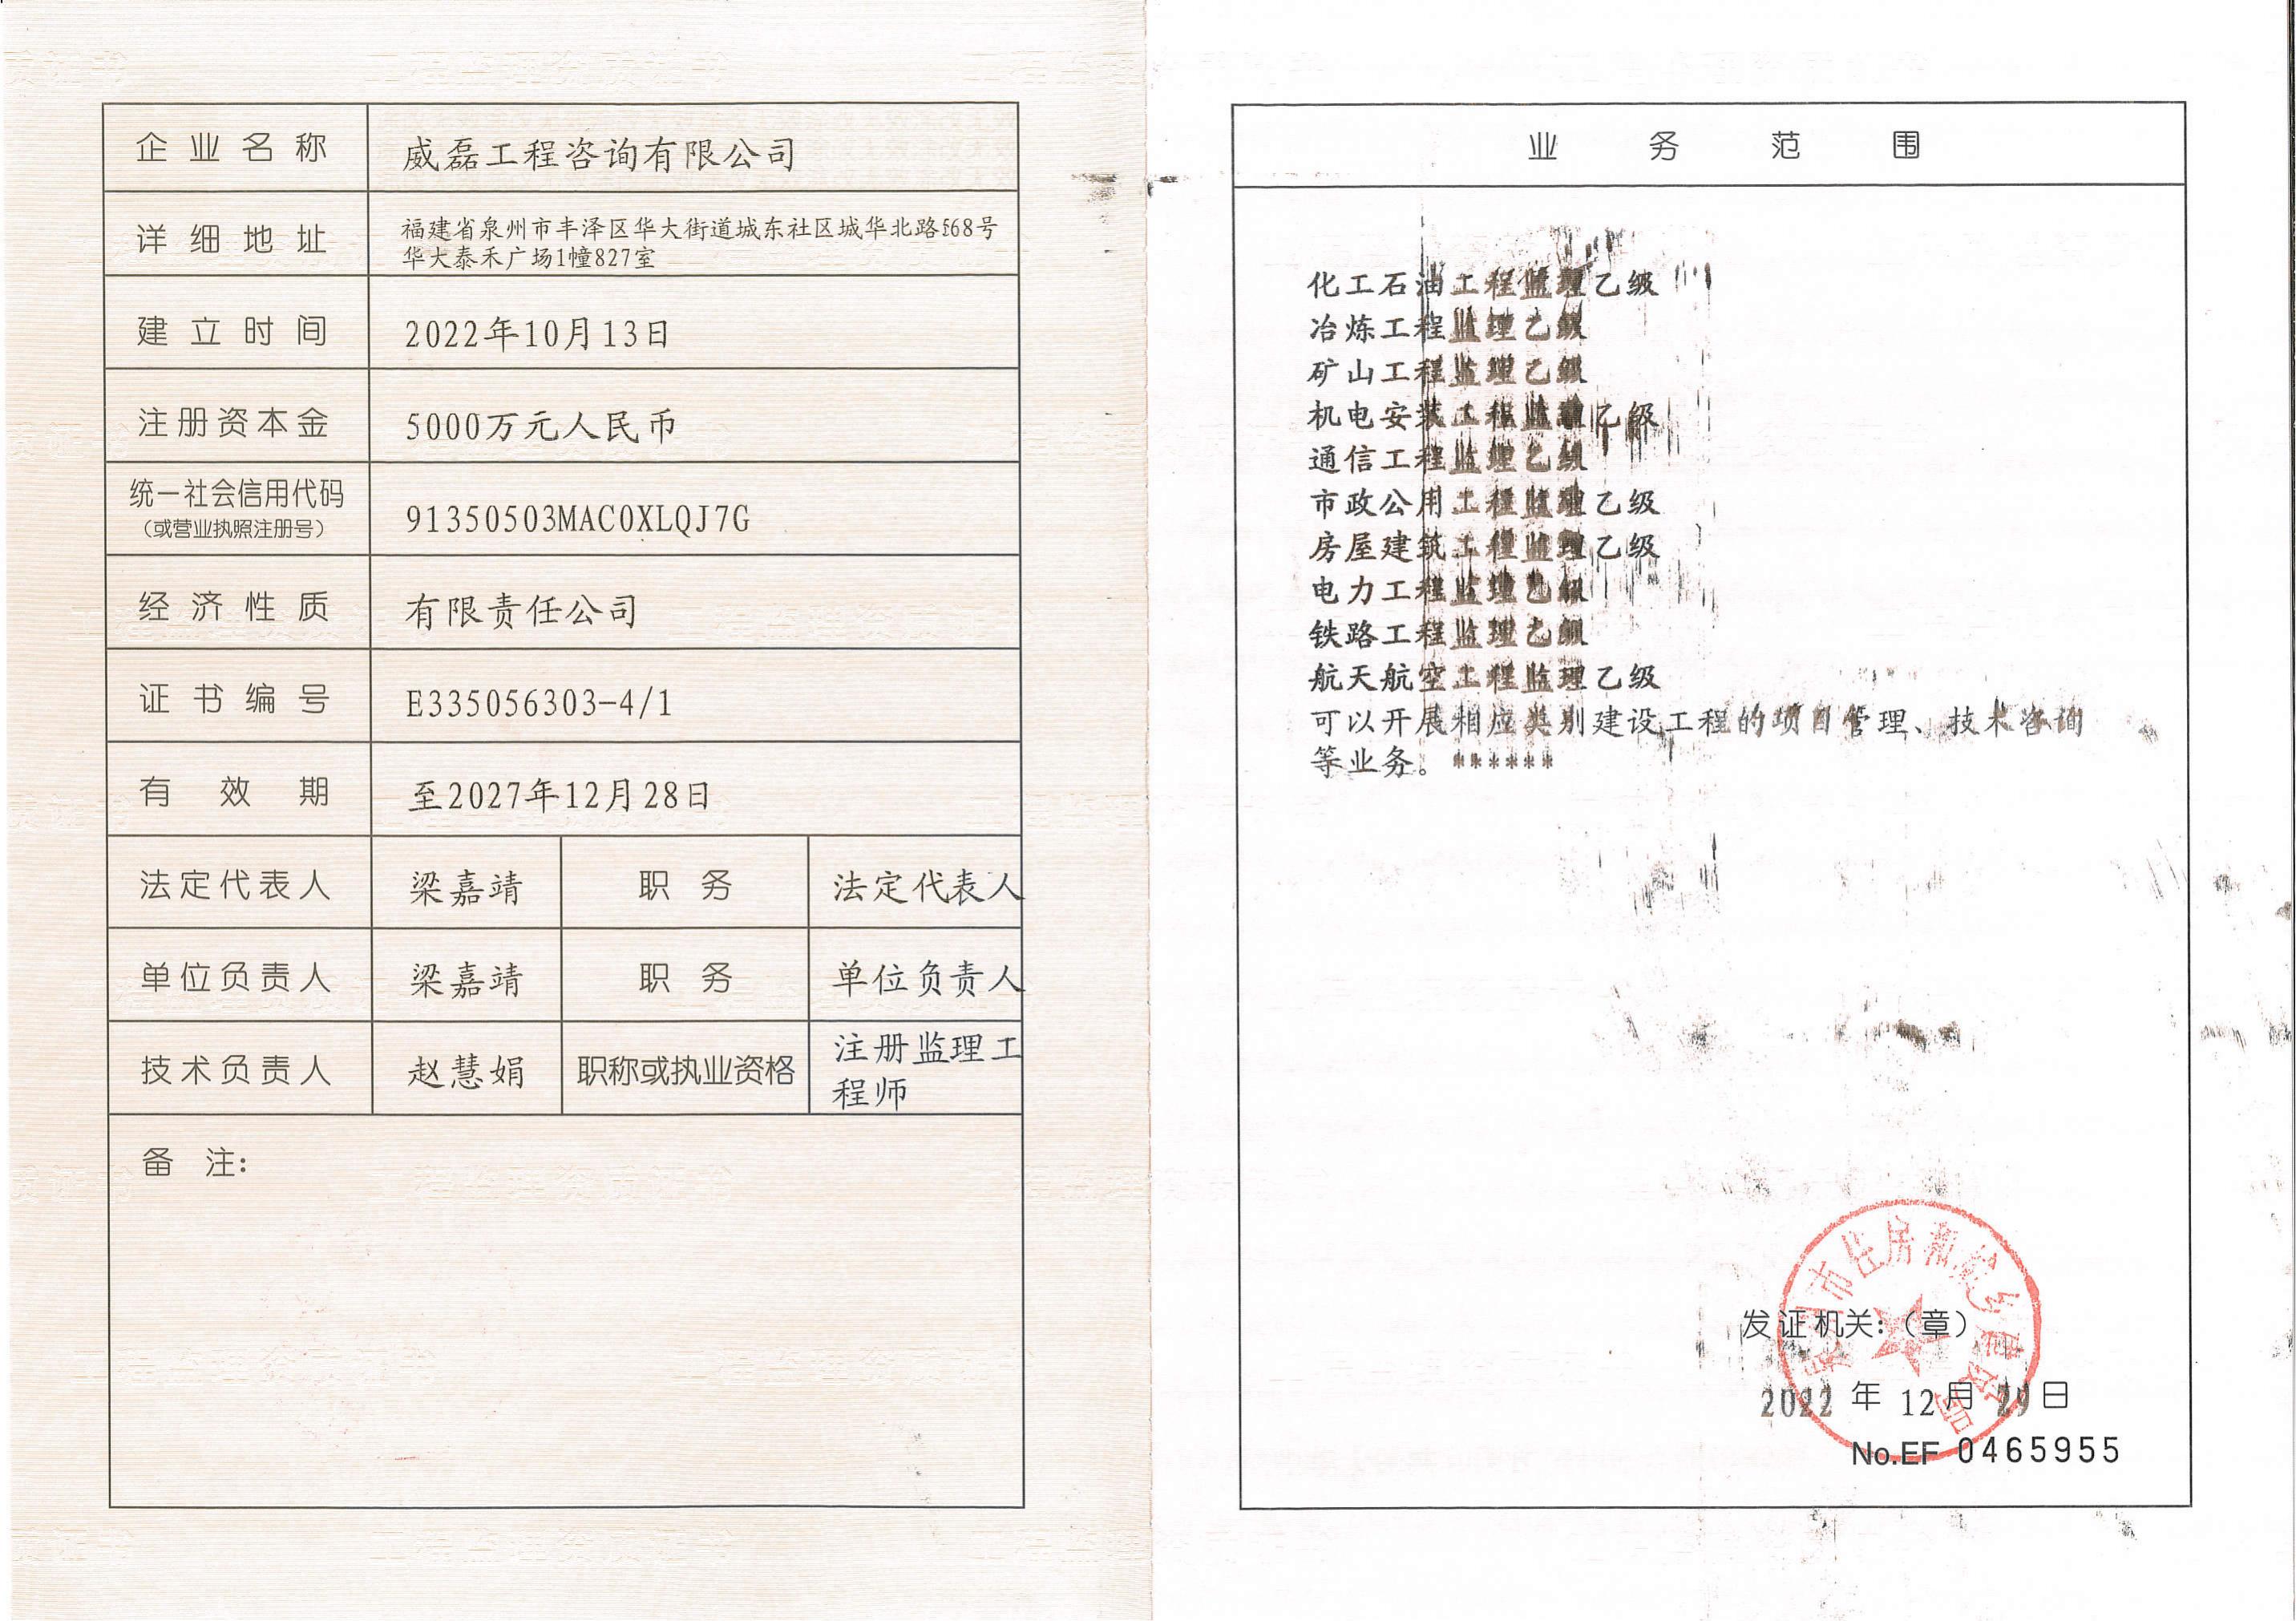 企业名称 威磊工程咨询有限公司
详细地址 福建省泉州市丰泽区华大街道城东社区城华北路568号
华大泰禾广场1幢827室
建立时间 2022年10月13日
注册资本金 5000万元人民币
统一社会信用代码
(或营业执照注册号) 91350503MAC0XLQJ7G
经济性质 有限责任公司
证书编号 E335056303-4/1
有效期 至2027年12月28日
法定代表人 梁嘉靖 职务 法定代表人
单位负责人 梁嘉靖 职务 单位负责人
技术负责人 赵慧娟 职称或执业资格 注册监理工
程师
备注:
业务范围
化工石油工程监理乙级
冶炼工程监理乙级
矿山工程监理乙级
机电安装工程监理乙级
通信工程监理乙级
市政公用工程监理乙级
房屋建筑工程监理乙级
电力工程监理乙级
铁路工程监理乙级
航天航空工程监理乙级
可以开展相应类别建设工程的项目管理、技术咨询
等业务。******
泉州市住房和城乡建设局
发证机关:(章)
2022年12月29日
No.EF 0465955